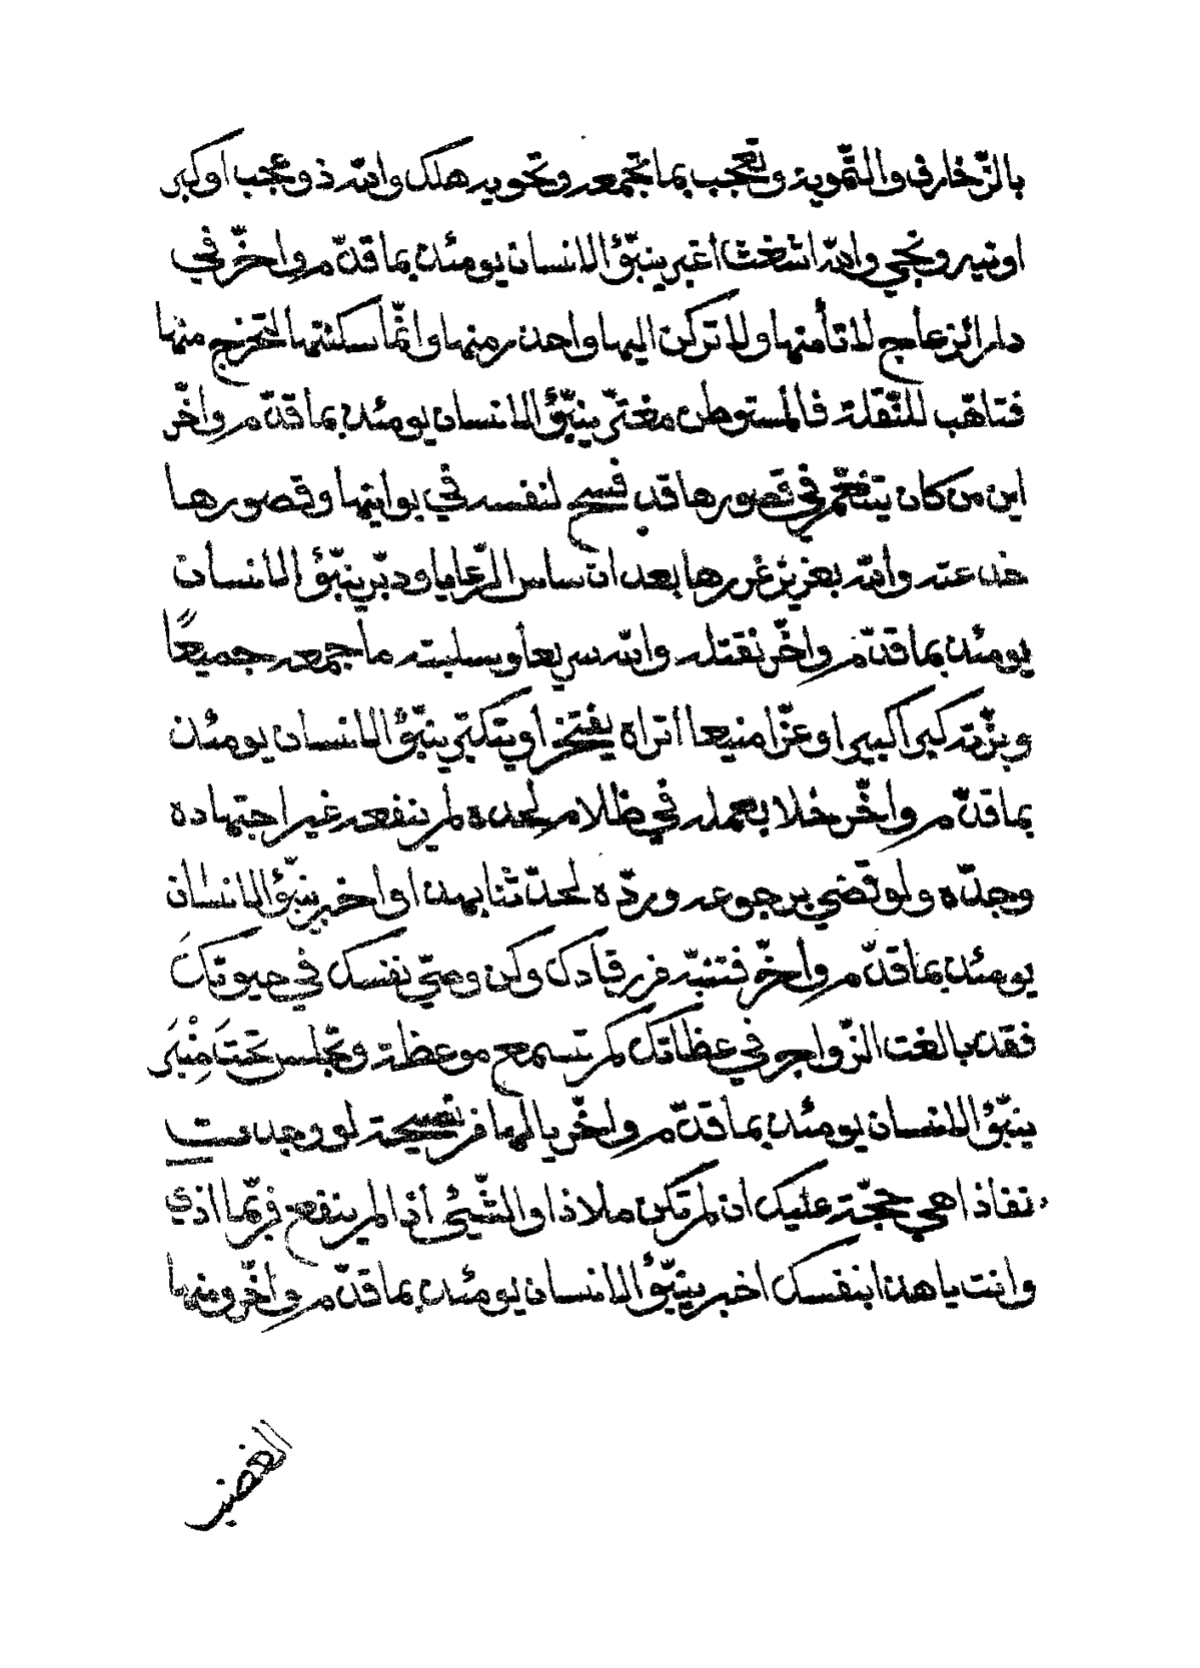 بالزّخارف والتّمويه وتعجب بما تجمعه وتحويه هلك والله ذو عجب او كبر
او تيه ونجي والله اشعث اغبر ينبّؤ الانسان يومئذ بما قدّم واخّر في
دار ازعاج لا تأمنها ولا تركن اليها واحذرمنها وانّما سكنتها لتخرج منها
فتاهّب للنّقلة فالمستوطن مغترّ ينبّؤ الانسان يومئذ بما قدّم واخّر
اين من كان يتنعّم في قصورها قد فسح لنفسه في بواينها وقصورها
خدعته والله بغزيز غرورها بعد ان ساس الرّعايا ودبّر ينبّؤ الانسان
يومئذ بما قدّم واخّر نقتله والله سريعا ويسلبته ما جمعه جميعًا
وبزّته كبرا كبيرا وعزّا منيعا اتراه يفتخر أو يتكبّر ينبّؤ الانسان يومئذ
بما قدّم واخّر خلا بعمله في ظلام لحده لم ينفعه غير اجتهاده
وجدّه ولو قضي برجوعه وردّه لحدّثنا بهذا واخبر ينبّؤ الانسان
يومئذ بما قدّم واخّر فتنبّه فررقادك وكن وصيّ نفسك في حيوتكَ
فقد بالغت الزّواجر في عظاتك لم تسمع موعظة وتجلس تحتَ مِنْبَر
ينبّؤ الانسان يومئذ بما قدّم واخّر يا لها فر نصيحة لو وجدت
نفاذا هي حجّة عليك ان لم تكن ملاذا والشّيئ أذا لم ينفع فربّما اذي
وانت يا هذا بنفسك اخبر ينبّؤ الانسان يومئذ بما قدّم واخّر ومنها